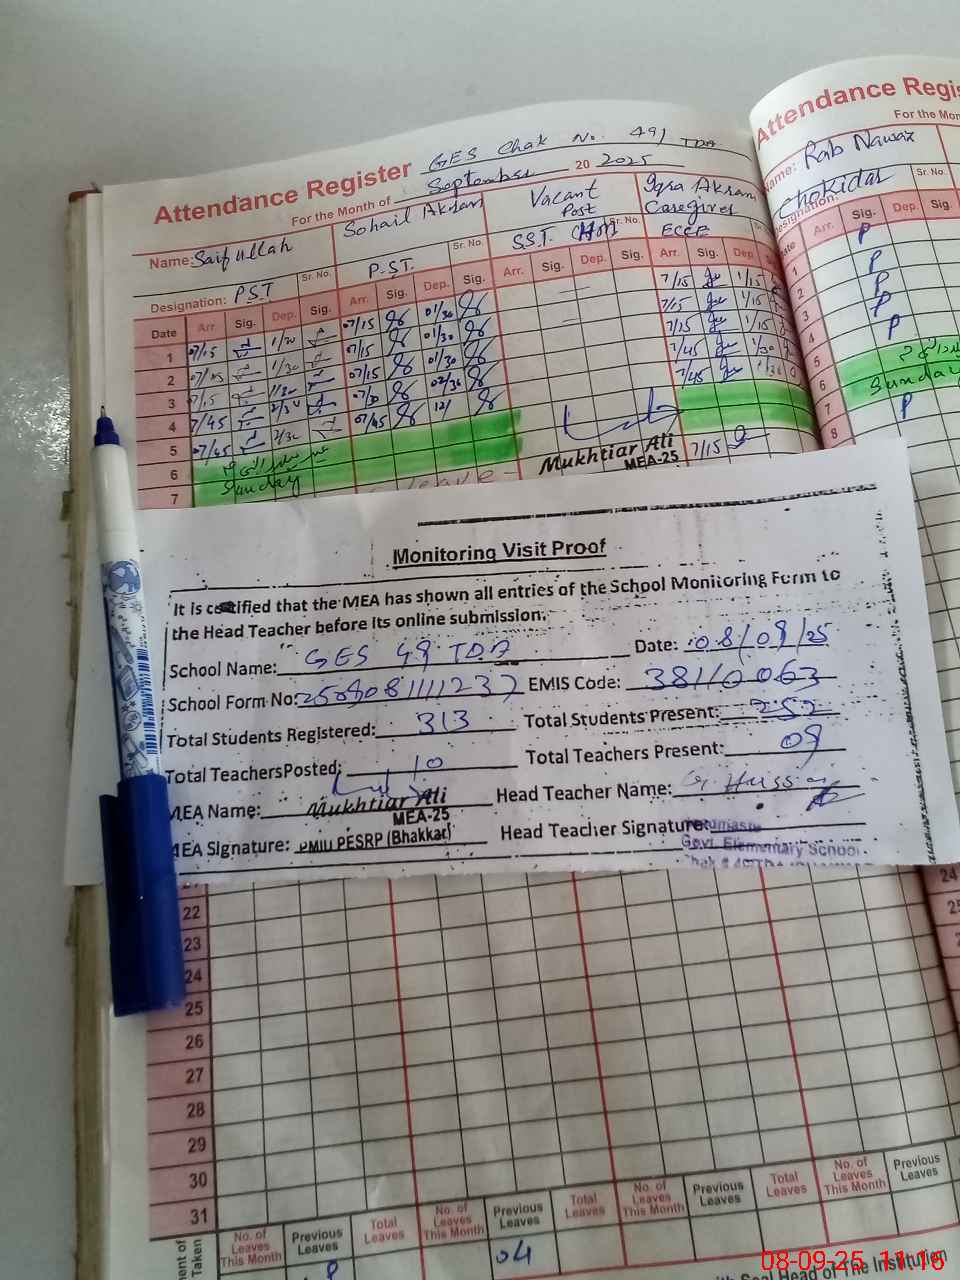 Attendance Register GES Chak No. 49/TDA
For the Month of September 2025
Name: Saif ullah
Sohail Akram
Vacant
Post
Iqra Akram
Caregiver
Designation: P.S.T
Sr. No.
P.S.T.
Sr. No.
S.S.T.
Sr. No.
ECCE
Date Arr. Sig. Dep. Sig. Arr. Sig. Dep. Sig. Arr. Sig. Dep. Sig. Arr. Sig. Dep
1 07/15 07/15 01/30 7/15 1/15
2 1/30 07/15 01/30 7/15 1/15
3 07/15 01/30 7/15 1/15
4 7/45 2/30 07/30 02/30 7/45 1/30
5 07/45 2/30 07/45 12/ 7/45
6
7 Sunday
Leave
Mukhtiar Ali
MEA-25
7/15
Attendance Regis
For the Mon
Name: Rab Nawaz
Sr. No.
Designation: Chokidar
Date Arr. Sig. Dep. Sig.
1 P
2 P
3 P
4 P
5 P
6
7 Sunday
8 P
Monitoring Visit Proof
It is certified that the MEA has shown all entries of the School Monitoring Form to
the Head Teacher before its online submission.
School Name: GES 49 TDA Date: 08/09/25
School Form No: 2509081111237 EMIS Code: 38110063
Total Students Registered: 313 Total Students Present: 252
Total TeachersPosted: 10 Total Teachers Present: 09
MEA Name: Mukhtiar Ali Head Teacher Name:
MEA-25
MEA Signature: PMIU PESRP (Bhakkar) Head Teacher Signature:
Govt. Elementary School
21
22
23
24
25
26
27
28
29
30
31
24
25
No. of Leaves This Month Previous Leaves Total Leaves No. of Leaves This Month Previous Leaves Total Leaves No. of Leaves This Month Previous Leaves Total Leaves No. of Leaves This Month Previous Leaves
ment of Taken
8 04
Head of The Institution
08-09-25 11:16